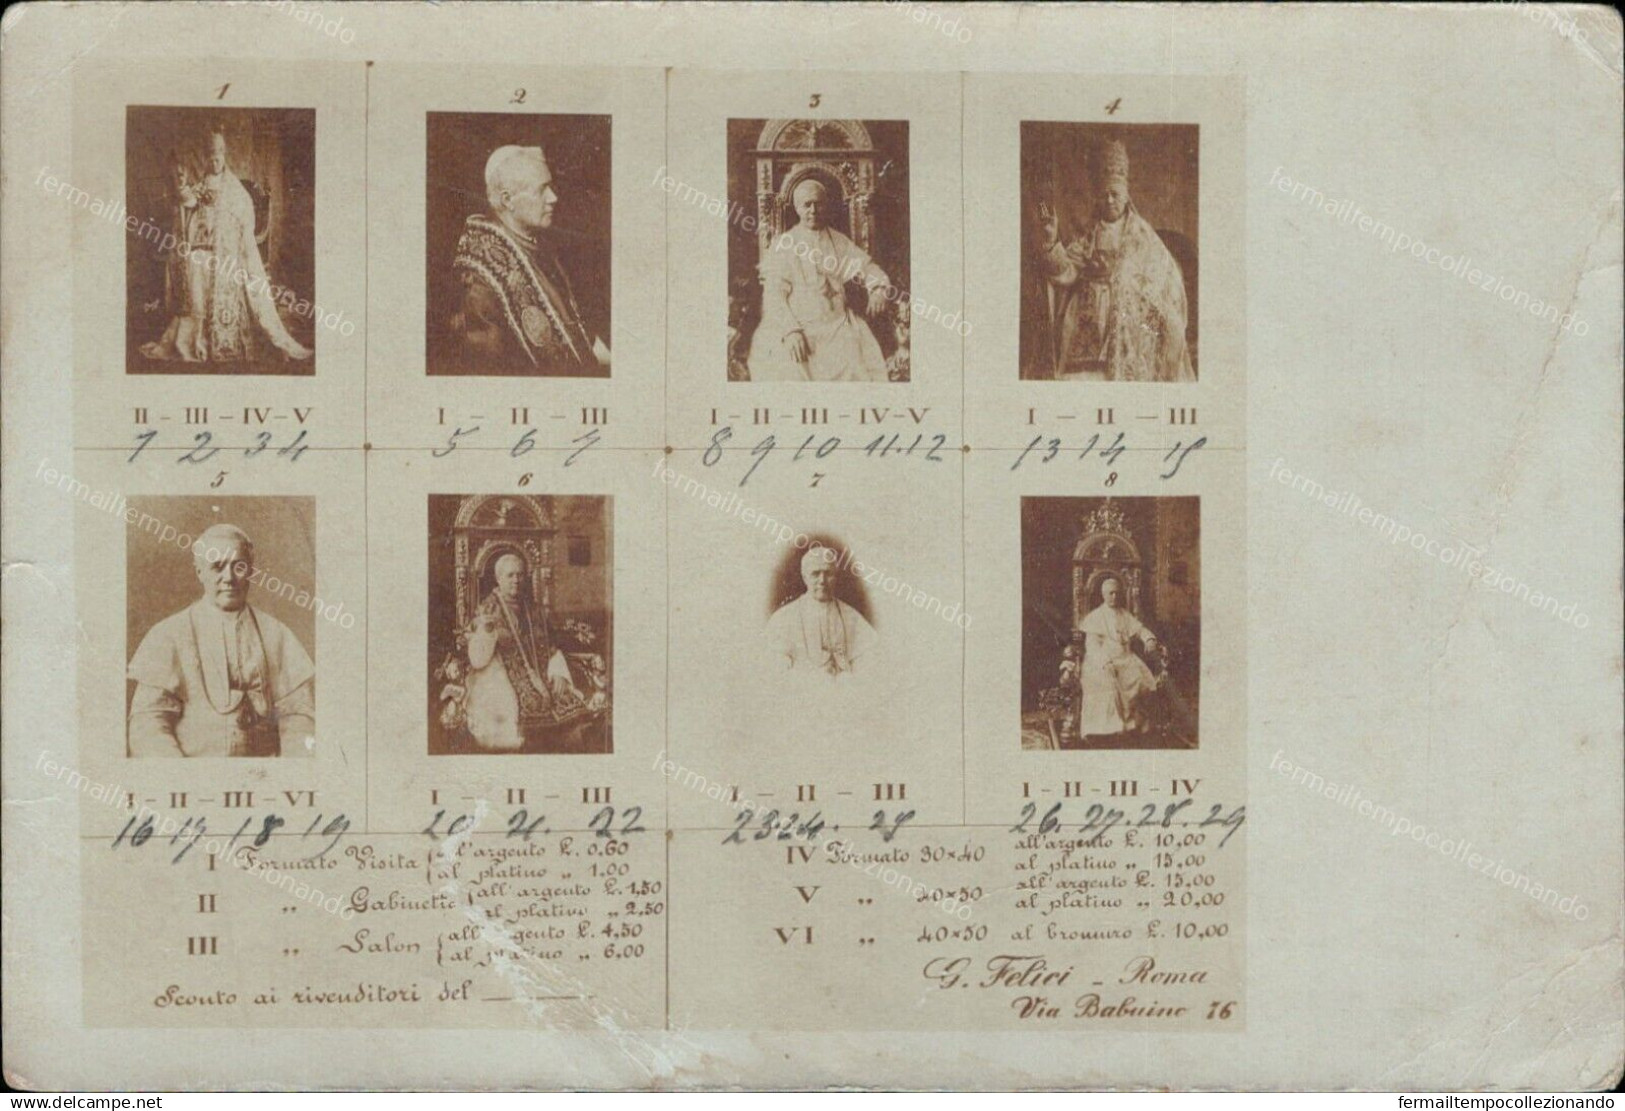 1 2 3 4
II - III - IV - V
I - II - III
I - II - III - IV - V
I - II - III
1 2 3 4
5 6 7
8 9 10 11. 12
13 14 15
5 6 7 8
I - II - III - VI
I - II - III
I - II - III
I - II - III - IV
16 17 18 19
20 21. 22
23. 24. 25
26. 27. 28. 29
I Formato Visita { all'argento £. 0.60
al platino „ 1.00
II „ Gabinetto { all'argento £. 1,50
al platino „ 2,50
III „ Salon { all'argento £. 4,50
al platino „ 6.00
Sconto ai rivenditori del
IV Formato 30×40 all'argento £. 10,00
al platino „ 15.00
V „ 40×50 all'argento £. 15.00
al platino „ 20,00
VI „ 40×50 al bromuro £. 10,00
G. Felici - Roma
Via Babuino 76
fermailtempocollezionando
www.delcampe.net
fermailtempocollezionando